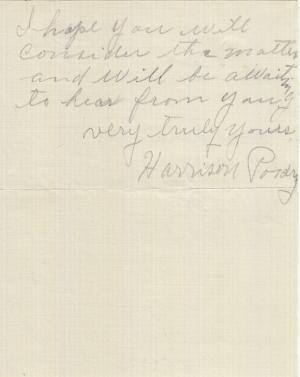 I hope you will
consider the matter
and will be awaiting
to hear from you
very truly yours.
Harrison